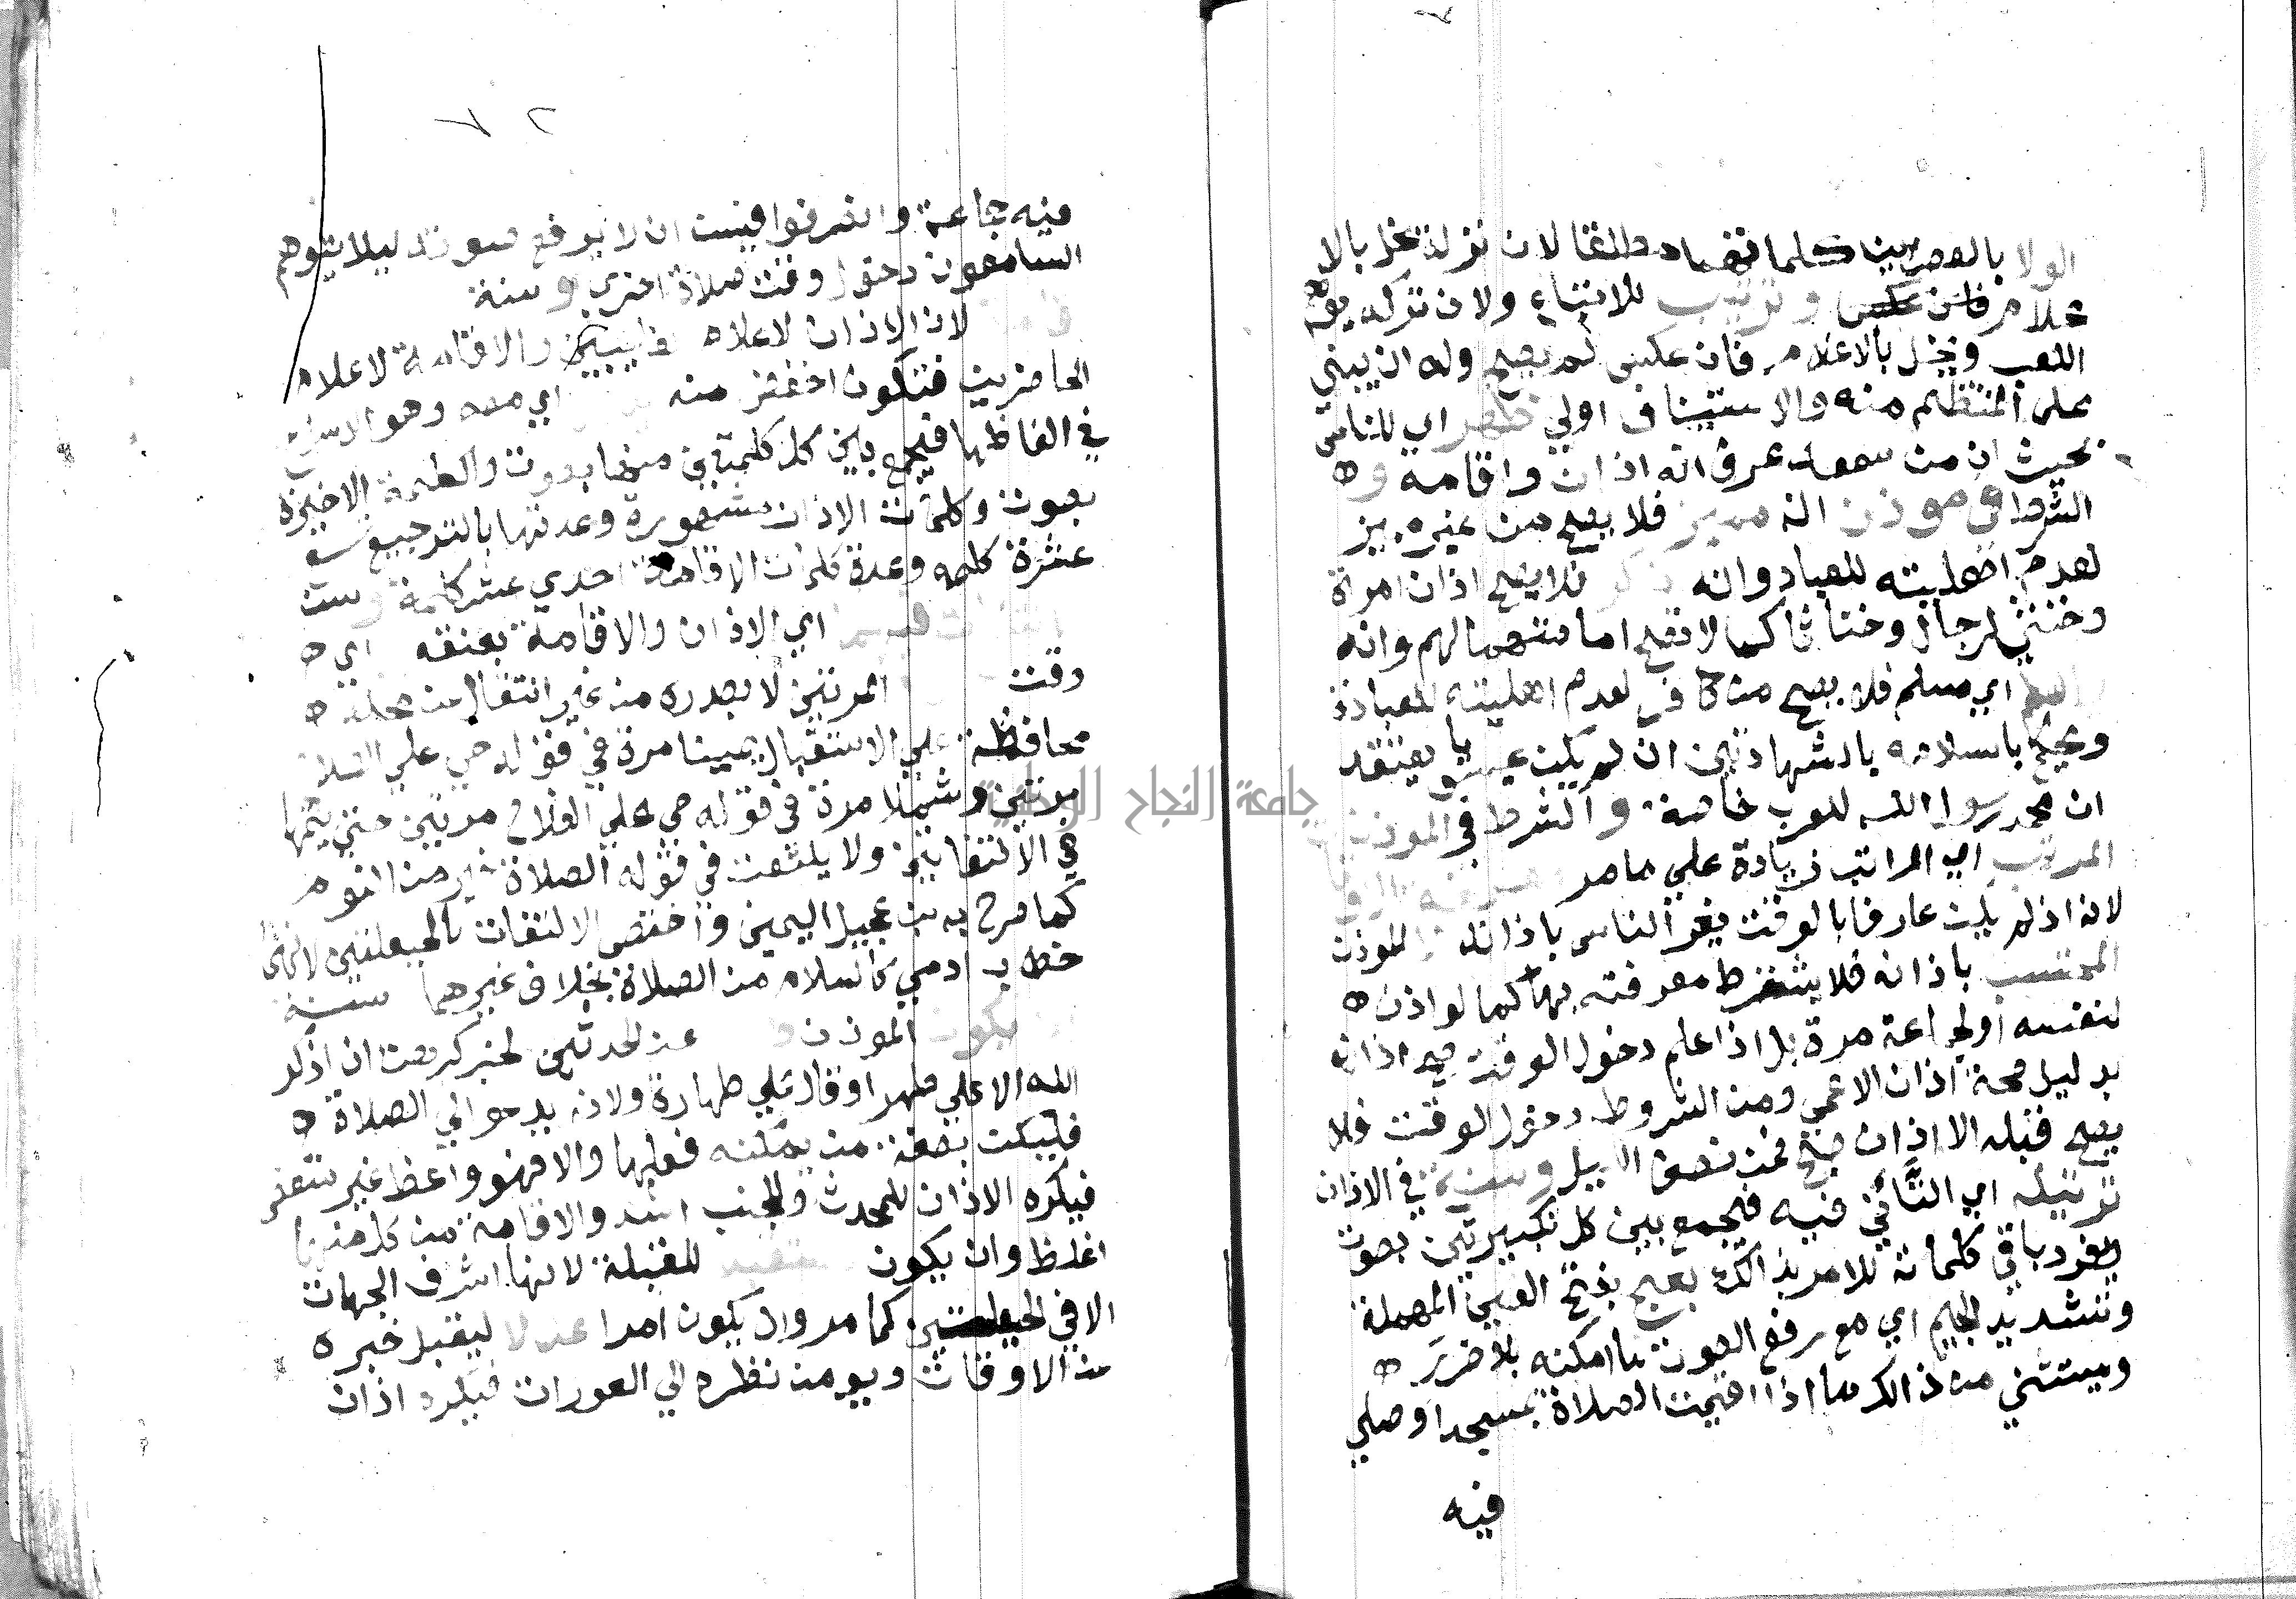 الولا بالقصر بين كلماتهما مطلقا لان تركه يخل بالا
علام وترتيب للاتباع ولان تركه يوهم
اللعب ويخل بالاعلام فان عكس لم يصح وله ان يبني
على المنتظم منه والاستيناف اولي اي للناس
بحيث ان من سمعه عرف انه اذان واقامه و
الشرط في موذن انه مميز فلا يصح من غيره
لعدم اهليته للعباد وانه ذكر فلا يصح اذان امراة
وخنثي لرجال وخناثا كما لا تصح امامتهما لهم وانه
اي مسلم فلا يصح من كافر لعدم اهليته للعبادة
ويحكم باسلامه بالشهادتين ان لم يكن عيسويا يعتقد
ان محمد رسول الله للعرب خاصة والشرط في الموذن
المرتب اي الراتب زيادة علي مامر
لانه اذا لم يكن عارفا بالوقت يغر الناس باذانه الموذن
المحتسب باذانه فلا يشترط معرفته بها كما لو اذن
لنفسه او لجماعة مرة بل اذا علم دخول الوقت صح اذانه
بدليل صحة اذان الاعمي ومن الشروط دخول الوقت فلا
يصح قبله الا اذان صبح فمن نصف الليل وسن في الاذان
ترتيله اي التأني فيه فيجمع بين كل تكبيرتين بصوت
ويفرد باقي كلماته للامر بذالك بعج بفتح العين المهملة
وتشديد الجيم اي مع رفع الصوت ما امكنه بلا ضرر
ويستثني من ذالك ما اذا اقيمت الصلاة بمسجد او صلي
فيه
٧٢
فيه جماعة وانصرفوا فيسن ان لا يرفع صوته ليلا يتوهم
السامعون دخول وقت صلاة اخري وسنة
لان الاذان لاعلام الغايبين والاقامة لاعلام
الحاضرين فتكون اخفض منه اي معه وهو الاسراع
في الفاظها فيجمع بين كل كلمتين منها بصوت والكلمة الاخيرة
بصوت وكلمات الاذان مشهورة وعدتها بالترجيع تسع
عشرة كلمه وعدة كلمات الاقامة احدي عشر كلمة وسن
اي الاذان والاقامة بعنقه اي
وقت المرتين لا بصدره من غير انتقال من محله
محافظة علي الاستقبال يمينا مرة في قوله حي علي الصلاة
مرتين وشمالا مرة في قوله حي علي الفلاح مرتين حتي يتمها
في الالتفاتين ولا يلتفت في قوله الصلاة خير من النوم
كما صرح به بن عجيل اليمين واختص الالتفات بالحيعلتين لانهما
خطاب ادمي كالسلام من الصلاة بخلاف غيرهما
يكون الموذن عن الحدثين لخبر كرهت ان اذكر
الله الا علي طهر او قال علي طهارة ولانه يدعوا الي الصلاة
فليكن بصفة من يمكنه فعلها والا فهو واعظ غير متعظ
فيكره الاذان للمحدث وللجنب اشد والاقامة من كل منهما
اغلظ وان يكون للقبلة لانها اشرف الجهات
الا في الحيعلتين كما مر وان يكون عدلا ليقبل خبره
من الاوقات ويومن نظره الي العورات فيكره اذان
جامعة النجاح الوطنية